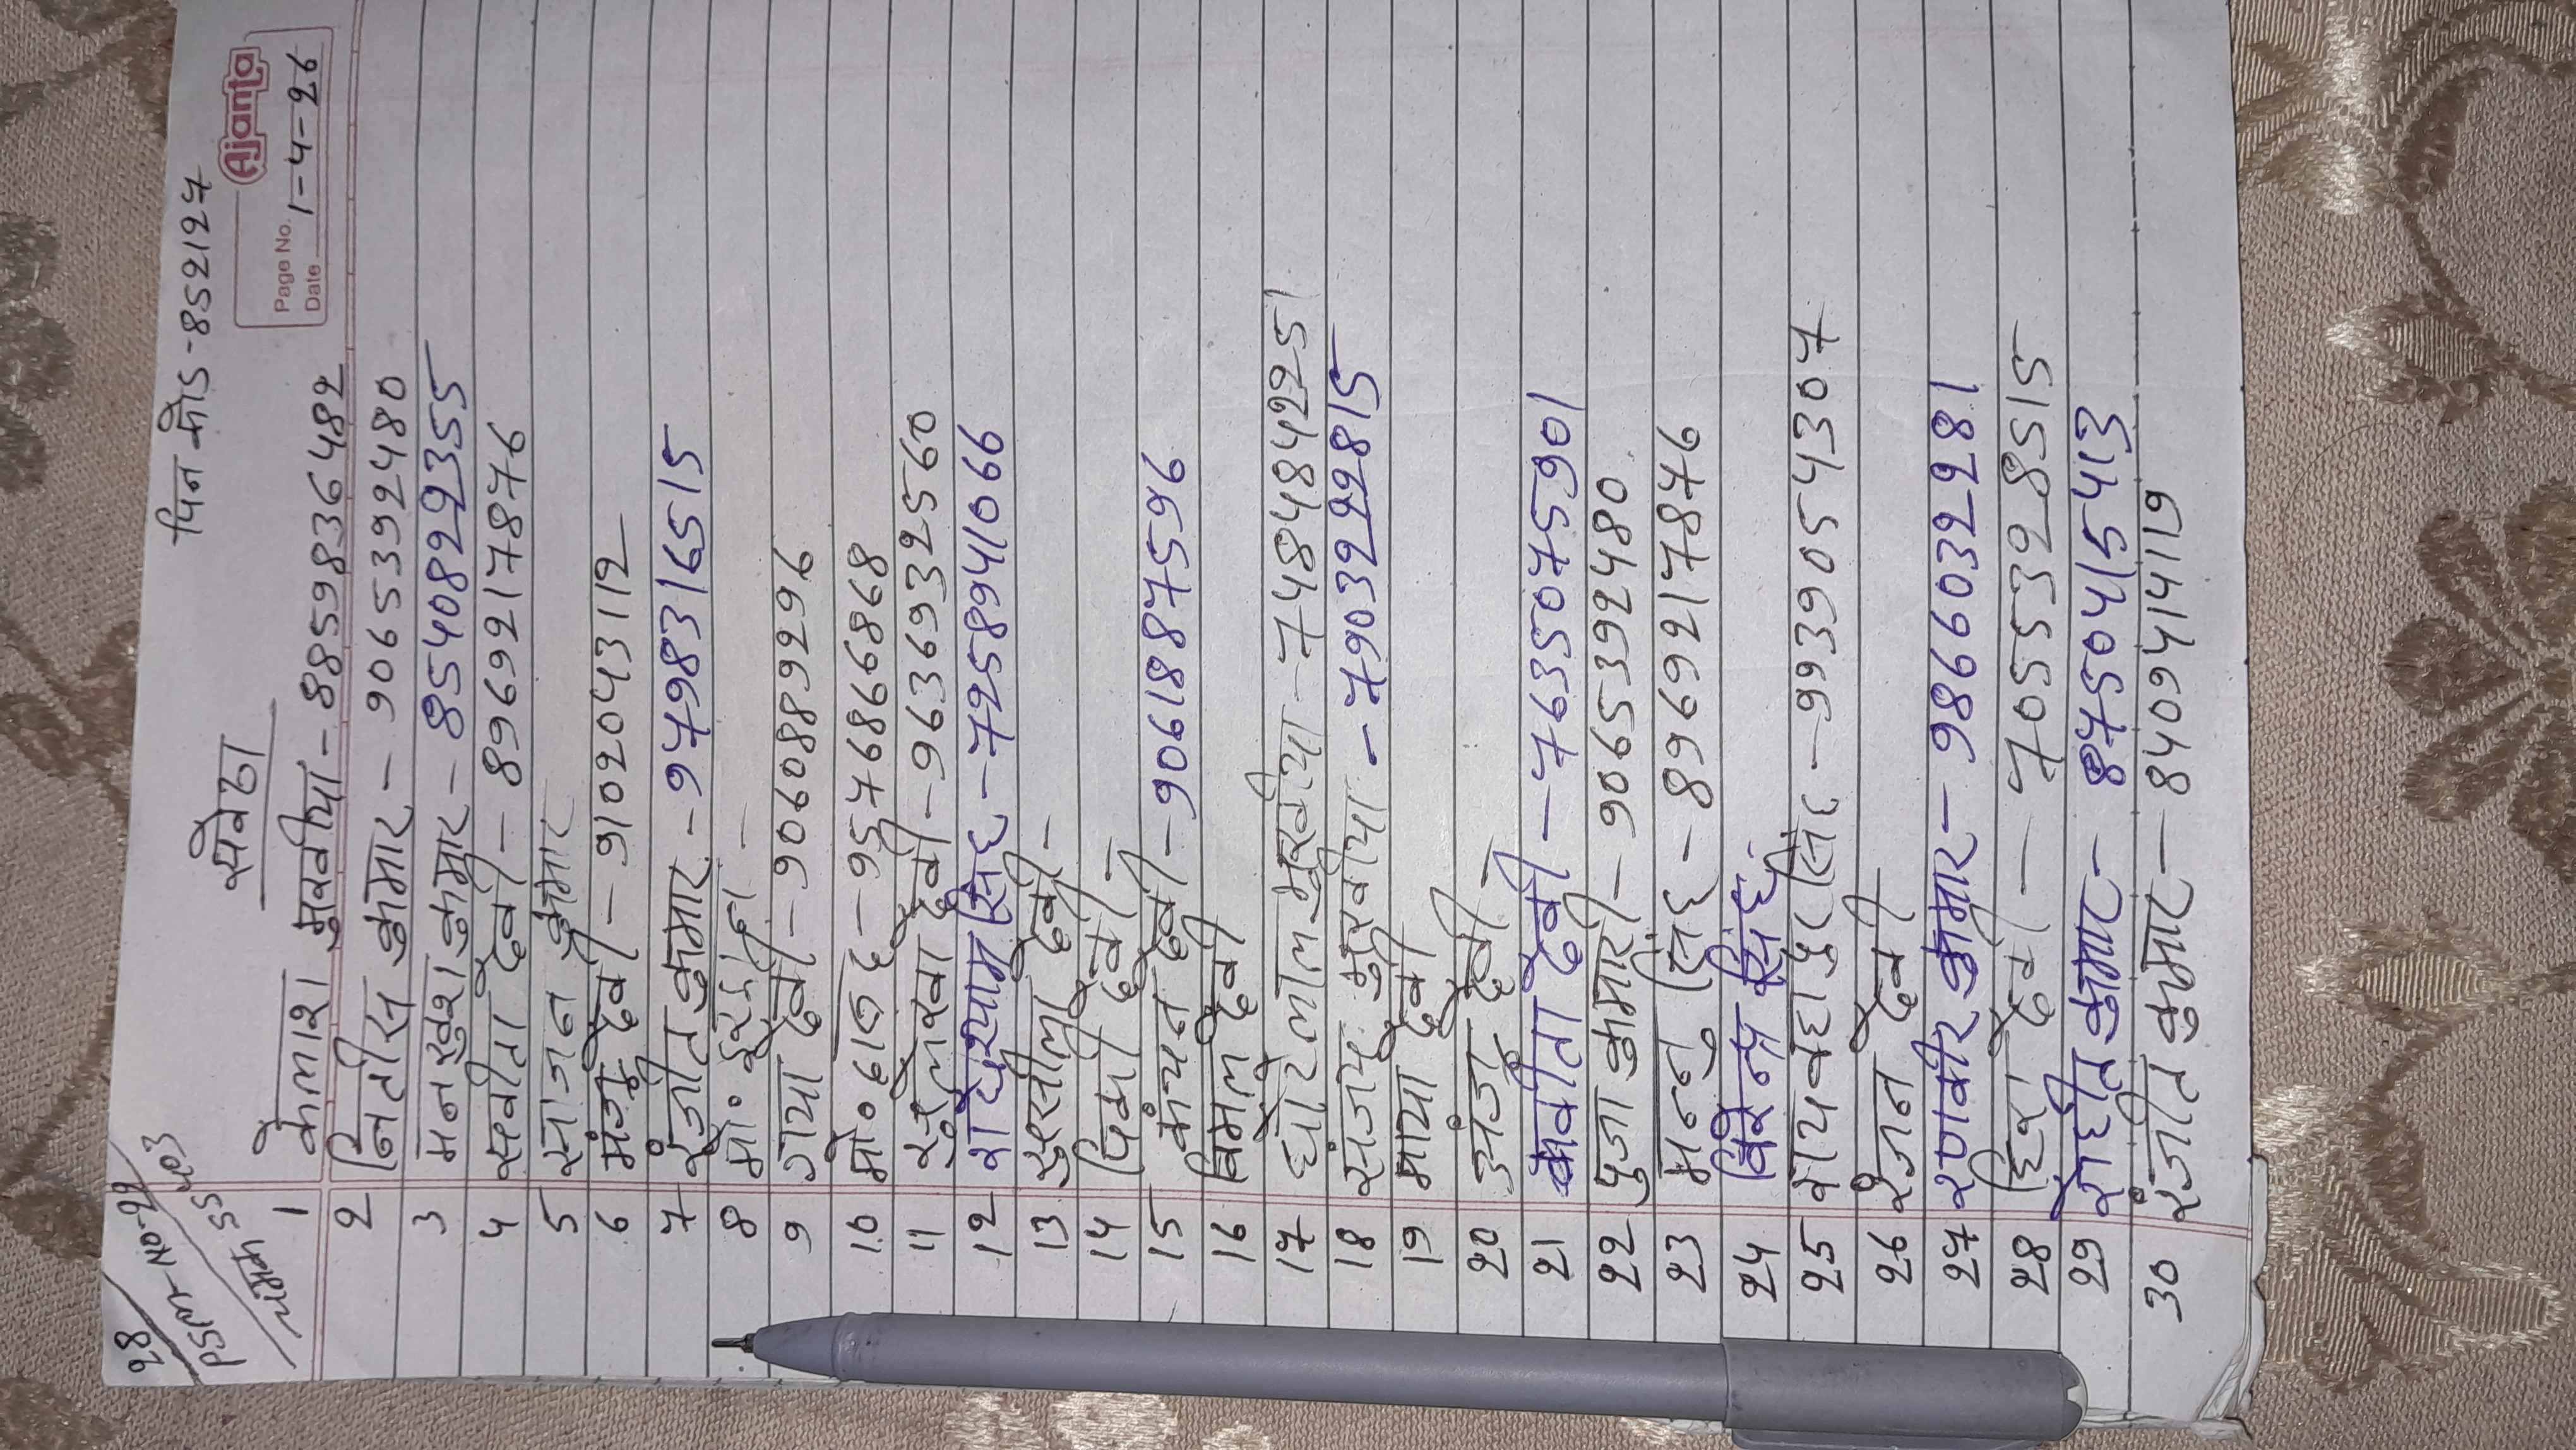 28
PSM- NO-22
पिन कोड - 852127
सेवढा
Ajanta
Page No.
Date 1-4-26
1 कैलाश मुखीया - 8859836482
2 नितीस कुमार - 9065392480
3 मनखुश कुमार - 8540822355
4 सवीता देवी - 8969217876
5 साजन कुमार
6 मंजू देवी - 9102043112
7 रंजीत कुमार - 9798316515
8 मो०
9 गया देवी - 9060889296
10 मो० - 9576866868
11 सुलेखा देवी - 9636932560
12 राधेश्याम सिंह - 7258941066
13 सुसीला देवी -
14 पिंकी देवी -
15 कंचन देवी - 9061887596
16 विमल देवी
17 घोरेलाल मुखीया - 7484842251
18 संजय मुखीया - 7903222815
19 माया देवी
20 अंजू देवी -
21 कवीता देवी - 7635075901
22 पुजा कुमारी - 9065392480
23 मन्नु सिंह - 8969217876
24 विरेन्द्र सिंह
25 रायबहादुर सिंह - 9939054307
26 रंजन देवी
27 रणवीर कुमार - 9866032281
28 हिरा देवी - 7055328515
29 रोहीत कुमार - 87450415413
30 रंजीत कुमार - 8409414119